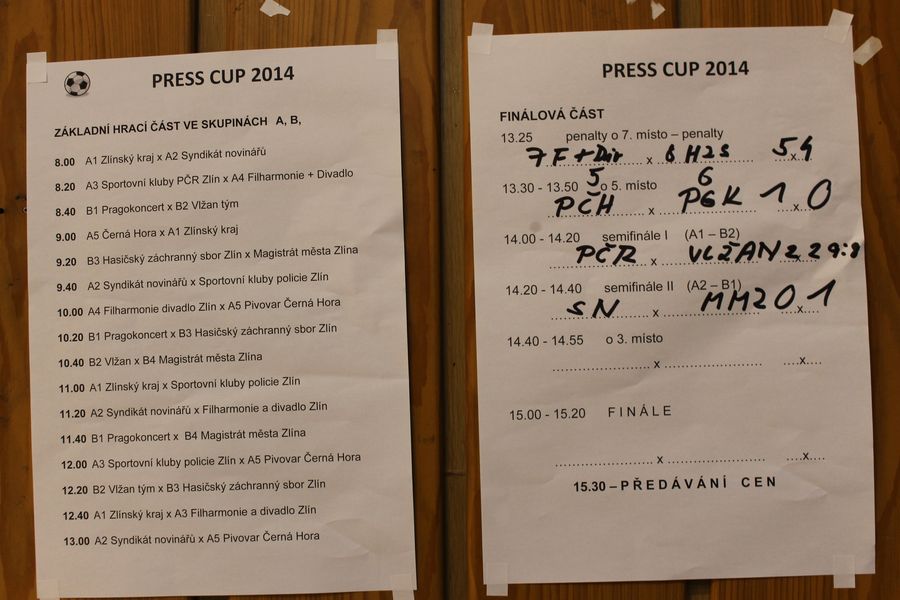 PRESS CUP 2014
ZÁKLADNÍ HRACÍ ČÁST VE SKUPINÁCH A, B,
8.00 A1 Zlínský kraj x A2 Syndikát novinářů
8.20 A3 Sportovní kluby PČR Zlín x A4 Filharmonie + Divadlo
8.40 B1 Pragokoncert x B2 Vlžan tým
9.00 A5 Černá Hora x A1 Zlínský kraj
9.20 B3 Hasičský záchranný sbor Zlín x Magistrát města Zlína
9.40 A2 Syndikát novinářů x Sportovní kluby policie Zlín
10.00 A4 Filharmonie divadlo Zlín x A5 Pivovar Černá Hora
10.20 B1 Pragokoncert x B3 Hasičský záchranný sbor Zlín
10.40 B2 Vlžan x B4 Magistrát města Zlína
11.00 A1 Zlínský kraj x Sportovní kluby policie Zlín
11.20 A2 Syndikát novinářů x Filharmonie a divadlo Zlín
11.40 B1 Pragokoncert x B4 Magistrát města Zlína
12.00 A3 Sportovní kluby policie Zlín x A5 Pivovar Černá Hora
12.20 B2 Vlžan tým x B3 Hasičský záchranný sbor Zlín
12.40 A1 Zlínský kraj x A3 Filharmonie a divadlo Zlín
13.00 A2 Syndikát novinářů x A5 Pivovar Černá Hora
PRESS CUP 2014
FINÁLOVÁ ČÁST
13.25 penalty o 7. místo – penalty
7 F + Div x 8 HZS 5 x 4
13.30 - 13.50 5 o 5. místo 6
PČH x PGK 1 x 0
14.00 - 14.20 semifinále I (A1 – B2)
PČR x VLŽAN 2 2 x
14.20 - 14.40 semifinále II (A2 – B1)
SN x MMZ 0 x 1
14.40 - 14.55 o 3. místo
.......................... x .......................... ....x....
15.00 - 15.20 FINÁLE
.......................... x .......................... ....x....
15.30 – PŘEDÁVÁNÍ CEN